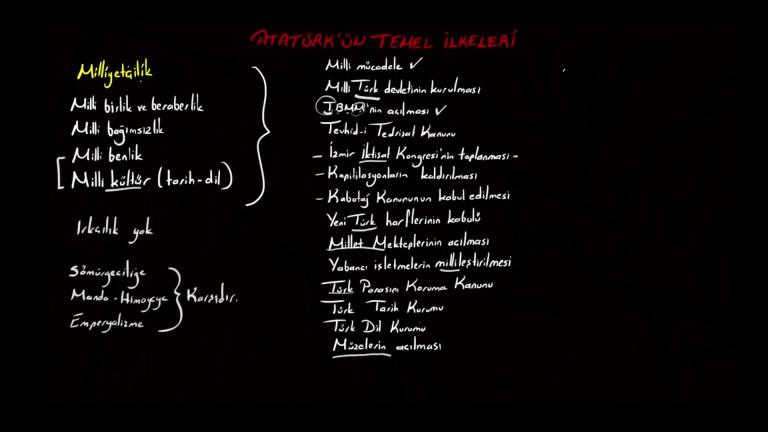 ATATÜRK'ÜN TEMEL İLKELERİ
Milliyetçilik
Milli birlik ve beraberlik
Milli bağımsızlık
Milli benlik
[Milli kültür (tarih-dil)
Irkçılık yok
Sömürgeciliğe
Manda-Himayeye
Emperyalizme
Karşıdır.
Milli mücadele ✓
Milli Türk devletinin kurulması
TBMM'nin açılması ✓
Tevhid-i Tedrisat Kanunu
- İzmir İktisat Kongresi'nin toplanması -
- Kapitilasyonların kaldırılması
- Kabotaj Kanununun kabul edilmesi
Yeni Türk harflerinin kabulü
Millet Mekteplerinin açılması
Yabancı işletmelerin millileştirilmesi
Türk Parasını Koruma Kanunu
Türk Tarih Kurumu
Türk Dil Kurumu
Müzelerin açılması